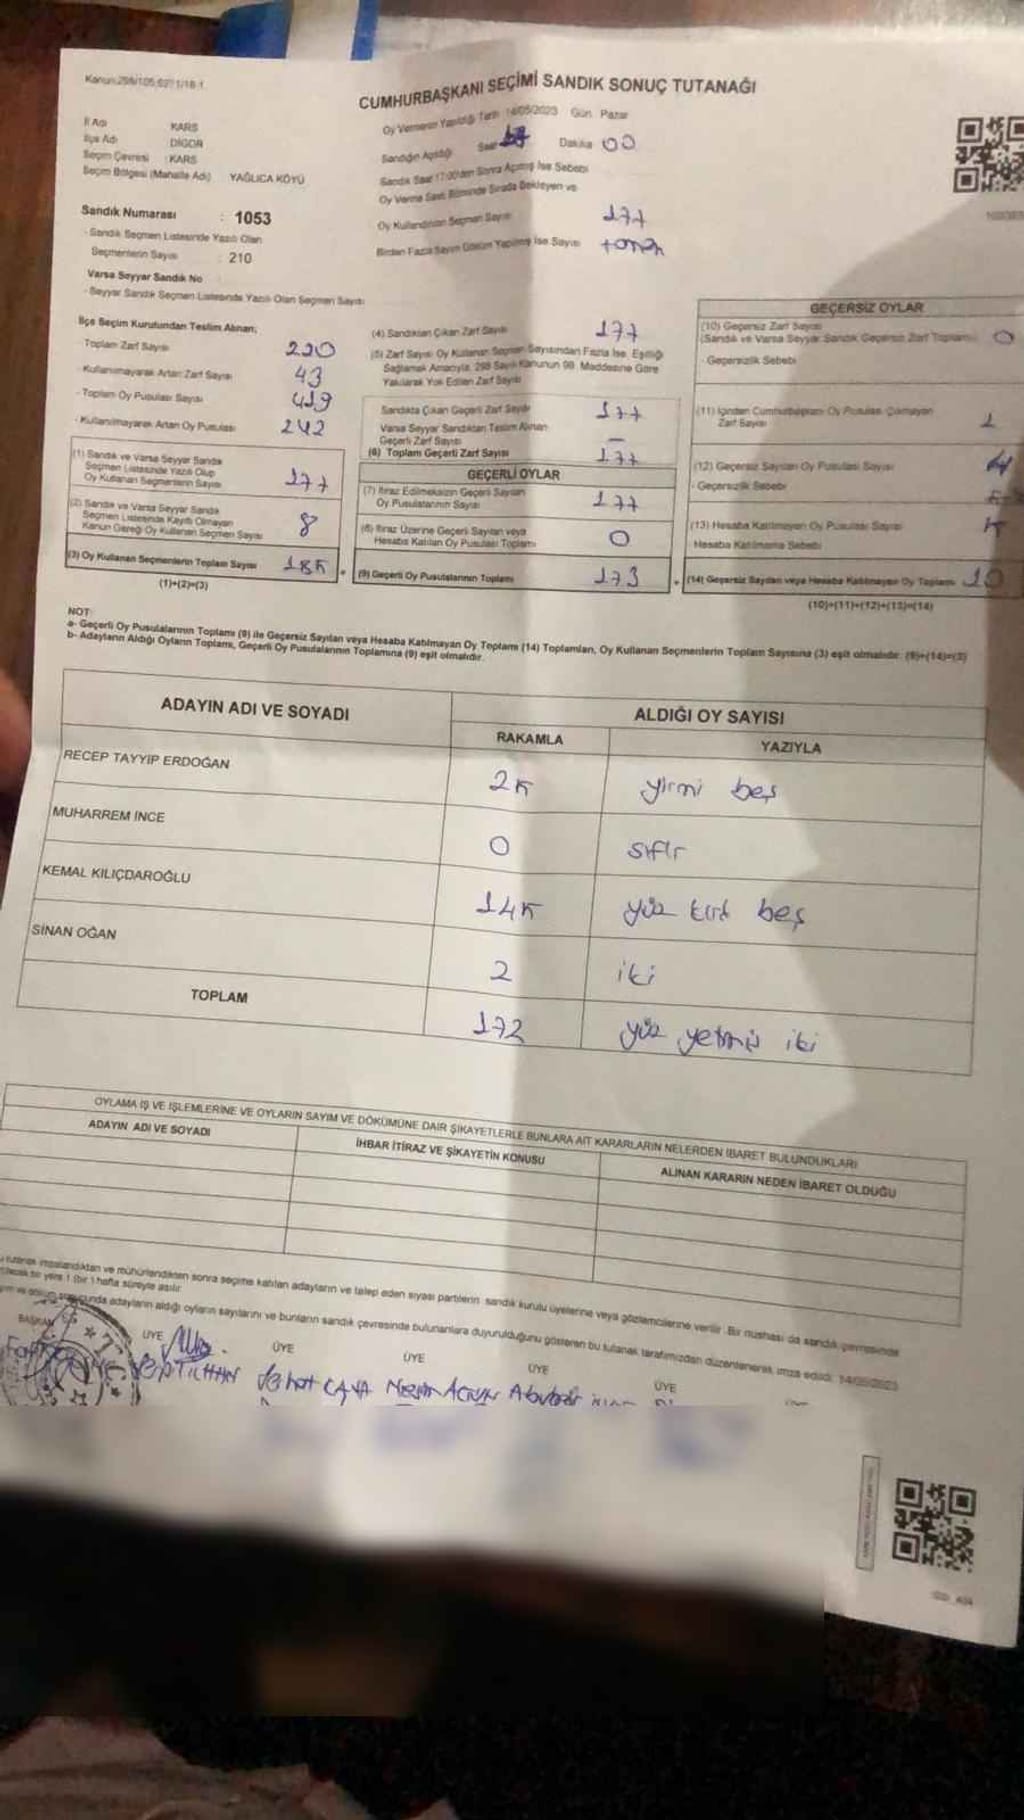 Kanun:298/105,6271/18-1
CUMHURBAŞKANI SEÇİMİ SANDIK SONUÇ TUTANAĞI
İl Adı KARS
İlçe Adı DİGOR
Seçim Çevresi : KARS
Seçim Bölgesi (Mahalle Adı) YAĞLICA KÖYÜ
Oy Vermenin Yapıldığı Tarih 14/05/2023 Gün Pazar
Sandığın Açıldığı Saat Dakika 00
Sandık Saat 17:00'den Sonra Açılmış İse Sebebi
Oy Verme Saati Bitiminde Sırada Bekleyen ve
Oy Kullandırılan Seçmen Sayısı 177
Birden Fazla Sayım Döküm Yapılmış İse Sayısı
Sandık Numarası : 1053
- Sandık Seçmen Listesinde Yazılı Olan
Seçmenlerin Sayısı : 210
Varsa Seyyar Sandık No
- Seyyar Sandık Seçmen Listesinde Yazılı Olan Seçmen Sayısı
İlçe Seçim Kurulundan Teslim Alınan;
Toplam Zarf Sayısı 220
- Kullanılmayarak Artan Zarf Sayısı 43
- Toplam Oy Pusulası Sayısı 419
- Kullanılmayarak Artan Oy Pusulası 242
(1) Sandık ve Varsa Seyyar Sandık
Seçmen Listesinde Yazılı Olup
Oy Kullanan Seçmenlerin Sayısı 177
(2) Sandık ve Varsa Seyyar Sandık
Seçmen Listesinde Kayıtlı Olmayan
Kanun Gereği Oy Kullanan Seçmen Sayısı 8
(3) Oy Kullanan Seçmenlerin Toplam Sayısı 185
(1)+(2)=(3)
(4) Sandıktan Çıkan Zarf Sayısı 177
(5) Zarf Sayısı Oy Kullanan Seçmen Sayısından Fazla İse, Eşitliği
Sağlamak Amacıyla, 298 Sayılı Kanunun 98. Maddesine Göre
Yakılarak Yok Edilen Zarf Sayısı
Sandıkta Çıkan Geçerli Zarf Sayısı 177
Varsa Seyyar Sandıktan Teslim Alınan
Geçerli Zarf Sayısı –
(6) Toplam Geçerli Zarf Sayısı 177
GEÇERLİ OYLAR
(7) İtiraz Edilmeksizin Geçerli Sayılan
Oy Pusulalarının Sayısı 177
(8) İtiraz Üzerine Geçerli Sayılan veya
Hesaba Katılan Oy Pusulası Toplamı 0
(9) Geçerli Oy Pusulalarının Toplamı 173
GEÇERSİZ OYLAR
(10) Geçersiz Zarf Sayısı
(Sandık ve Varsa Seyyar Sandık Geçersiz Zarf Toplamı) 0
- Geçersizlik Sebebi
(11) İçinden Cumhurbaşkanı Oy Pusulası Çıkmayan
Zarf Sayısı 1
(12) Geçersiz Sayılan Oy Pusulası Sayısı 4
- Geçersizlik Sebebi
(13) Hesaba Katılmayan Oy Pusulası Sayısı 5
Hesaba Katılmama Sebebi
(14) Geçersiz Sayılan veya Hesaba Katılmayan Oy Toplamı 10
(10)+(11)+(12)+(13)=(14)
NOT:
a- Geçerli Oy Pusulalarının Toplamı (9) ile Geçersiz Sayılan veya Hesaba Katılmayan Oy Toplamı (14) Toplamları, Oy Kullanan Seçmenlerin Toplam Sayısına (3) eşit olmalıdır. (9)+(14)=(3)
b- Adayların Aldığı Oyların Toplamı, Geçerli Oy Pusulalarının Toplamına (9) eşit olmalıdır.
ADAYIN ADI VE SOYADI ALDIĞI OY SAYISI
RAKAMLA YAZIYLA
RECEP TAYYİP ERDOĞAN 25 yirmi beş
MUHARREM İNCE 0 sıfır
KEMAL KILIÇDAROĞLU 145 yüz kırk beş
SİNAN OĞAN 2 iki
TOPLAM 172 yüz yetmiş iki
OYLAMA İŞ VE İŞLEMLERİNE VE OYLARIN SAYIM VE DÖKÜMÜNE DAİR ŞİKAYETLERLE BUNLARA AİT KARARLARIN NELERDEN İBARET BULUNDUKLARI
ADAYIN ADI VE SOYADI İHBAR İTİRAZ VE ŞİKAYETİN KONUSU ALINAN KARARIN NEDEN İBARET OLDUĞU
tutanak imzalandıktan ve mühürlendikten sonra seçime katılan adayların ve talep eden siyasi partilerin sandık kurulu üyelerine veya gözlemcilerine verilir. Bir nüshası da sandık çevresinde
bir yere 1 (bir) hafta süreyle asılır.
adayların aldığı oyların sayılarını ve bunların sandık çevresinde bulunanlara duyurulduğunu gösteren bu tutanak tarafımızdan düzenlenerek imza edildi. 14/05/2023
BAŞKAN ÜYE ÜYE ÜYE ÜYE ÜYE